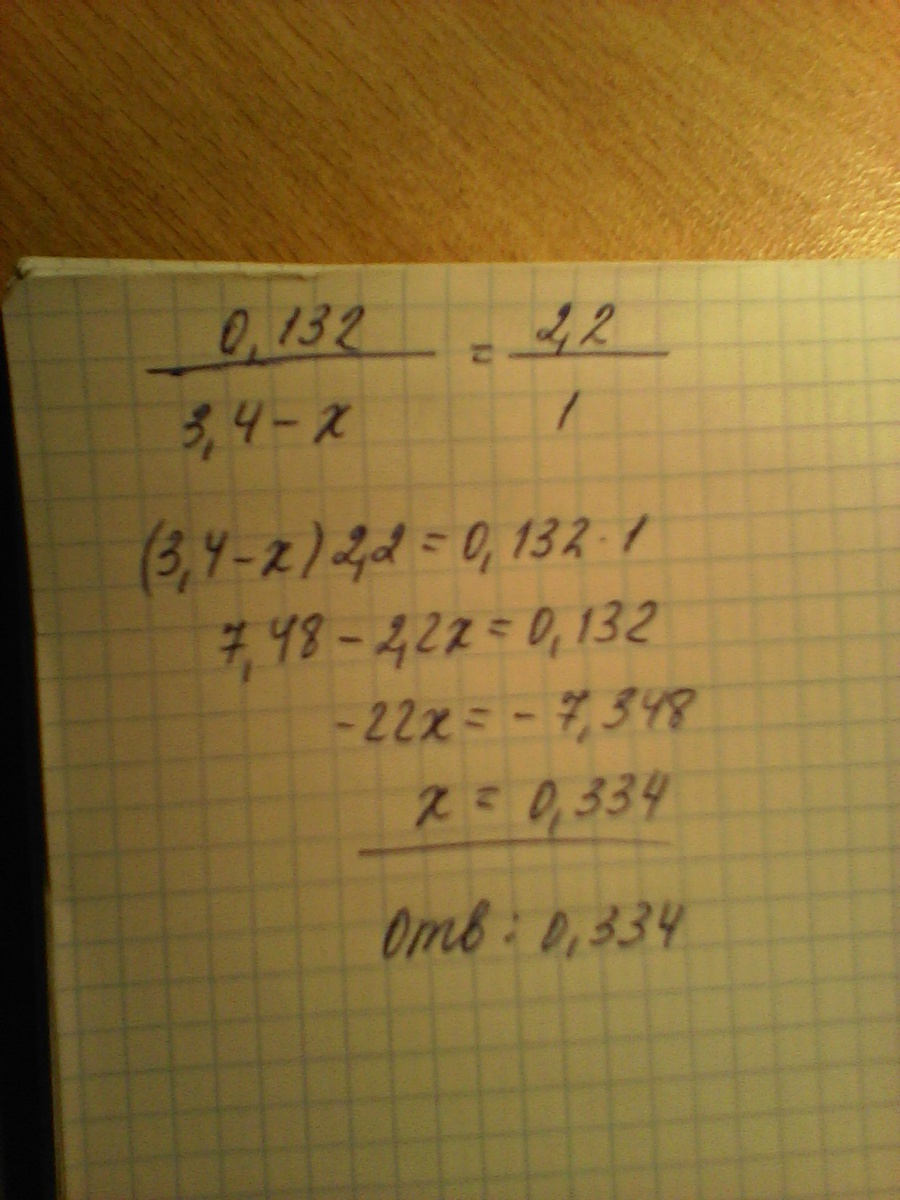 0,132 / 3,4 - x = 2,2 / 1
(3,4 - x) 2,2 = 0,132 · 1
7,48 - 2,2x = 0,132
-22x = - 7,348
x = 0,334
Отв: 0,334